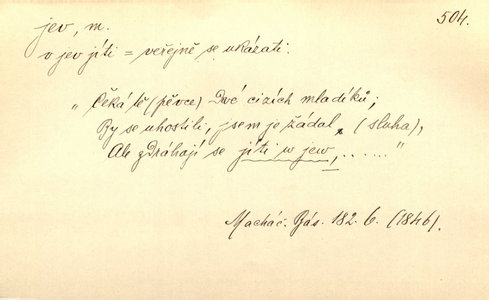 504.
jev, m.
v jev jíti = veřejně se ukázati.
„Čeká tě (pěvce) Dvé cizích mladíků;
By se uhostili, jsem je žádal, (sluha),
Ale zdráhají se jíti w jew, ......"
Macháč. Bás. 182. b. (1846).